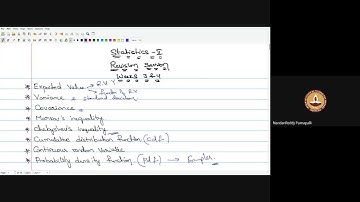 Statistics - II
Revision Session
Week 3 & 4
* Expected Value → R.V
→ function of R.V
* Variance & standard deviation
* Covariance
* Markov's inequality
* Chebyshev's inequality
* Cumulative distribution function (Cdf)
* Continuous random Variable
* Probability density function (Pdf) → Examples